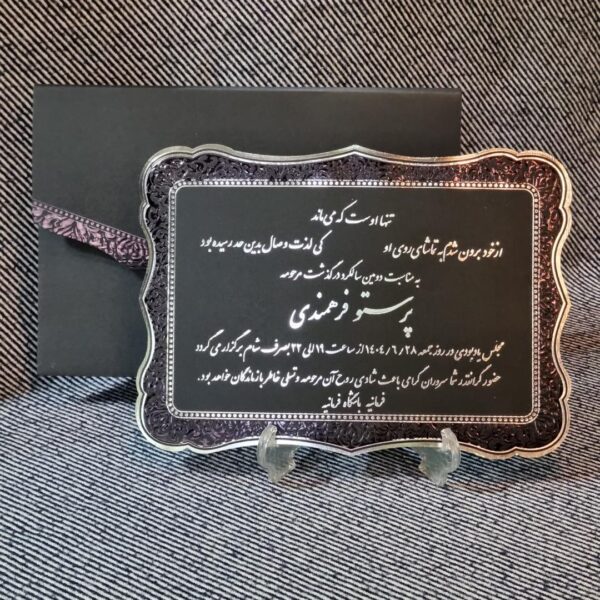 تنها اوست که می‌ماند
از خود برون شدم به تماشای روی او کی لذت وصال بدین حد رسیده بود
به مناسبت دومین سالگرد درگذشت مرحومه
پرستو فرهمندی
مجلس یادبودی در روز جمعه ۱۴۰۴/۶/۲۸ از ساعت ۱۹ الی ۲۲ بصرف شام برگزار می گردد
حضور گرانقدر شما سروران گرامی باعث شادی روح آن مرحومه و تسلی خاطر بازماندگان خواهد بود.
فرمانیه باشگاه فرمانیه